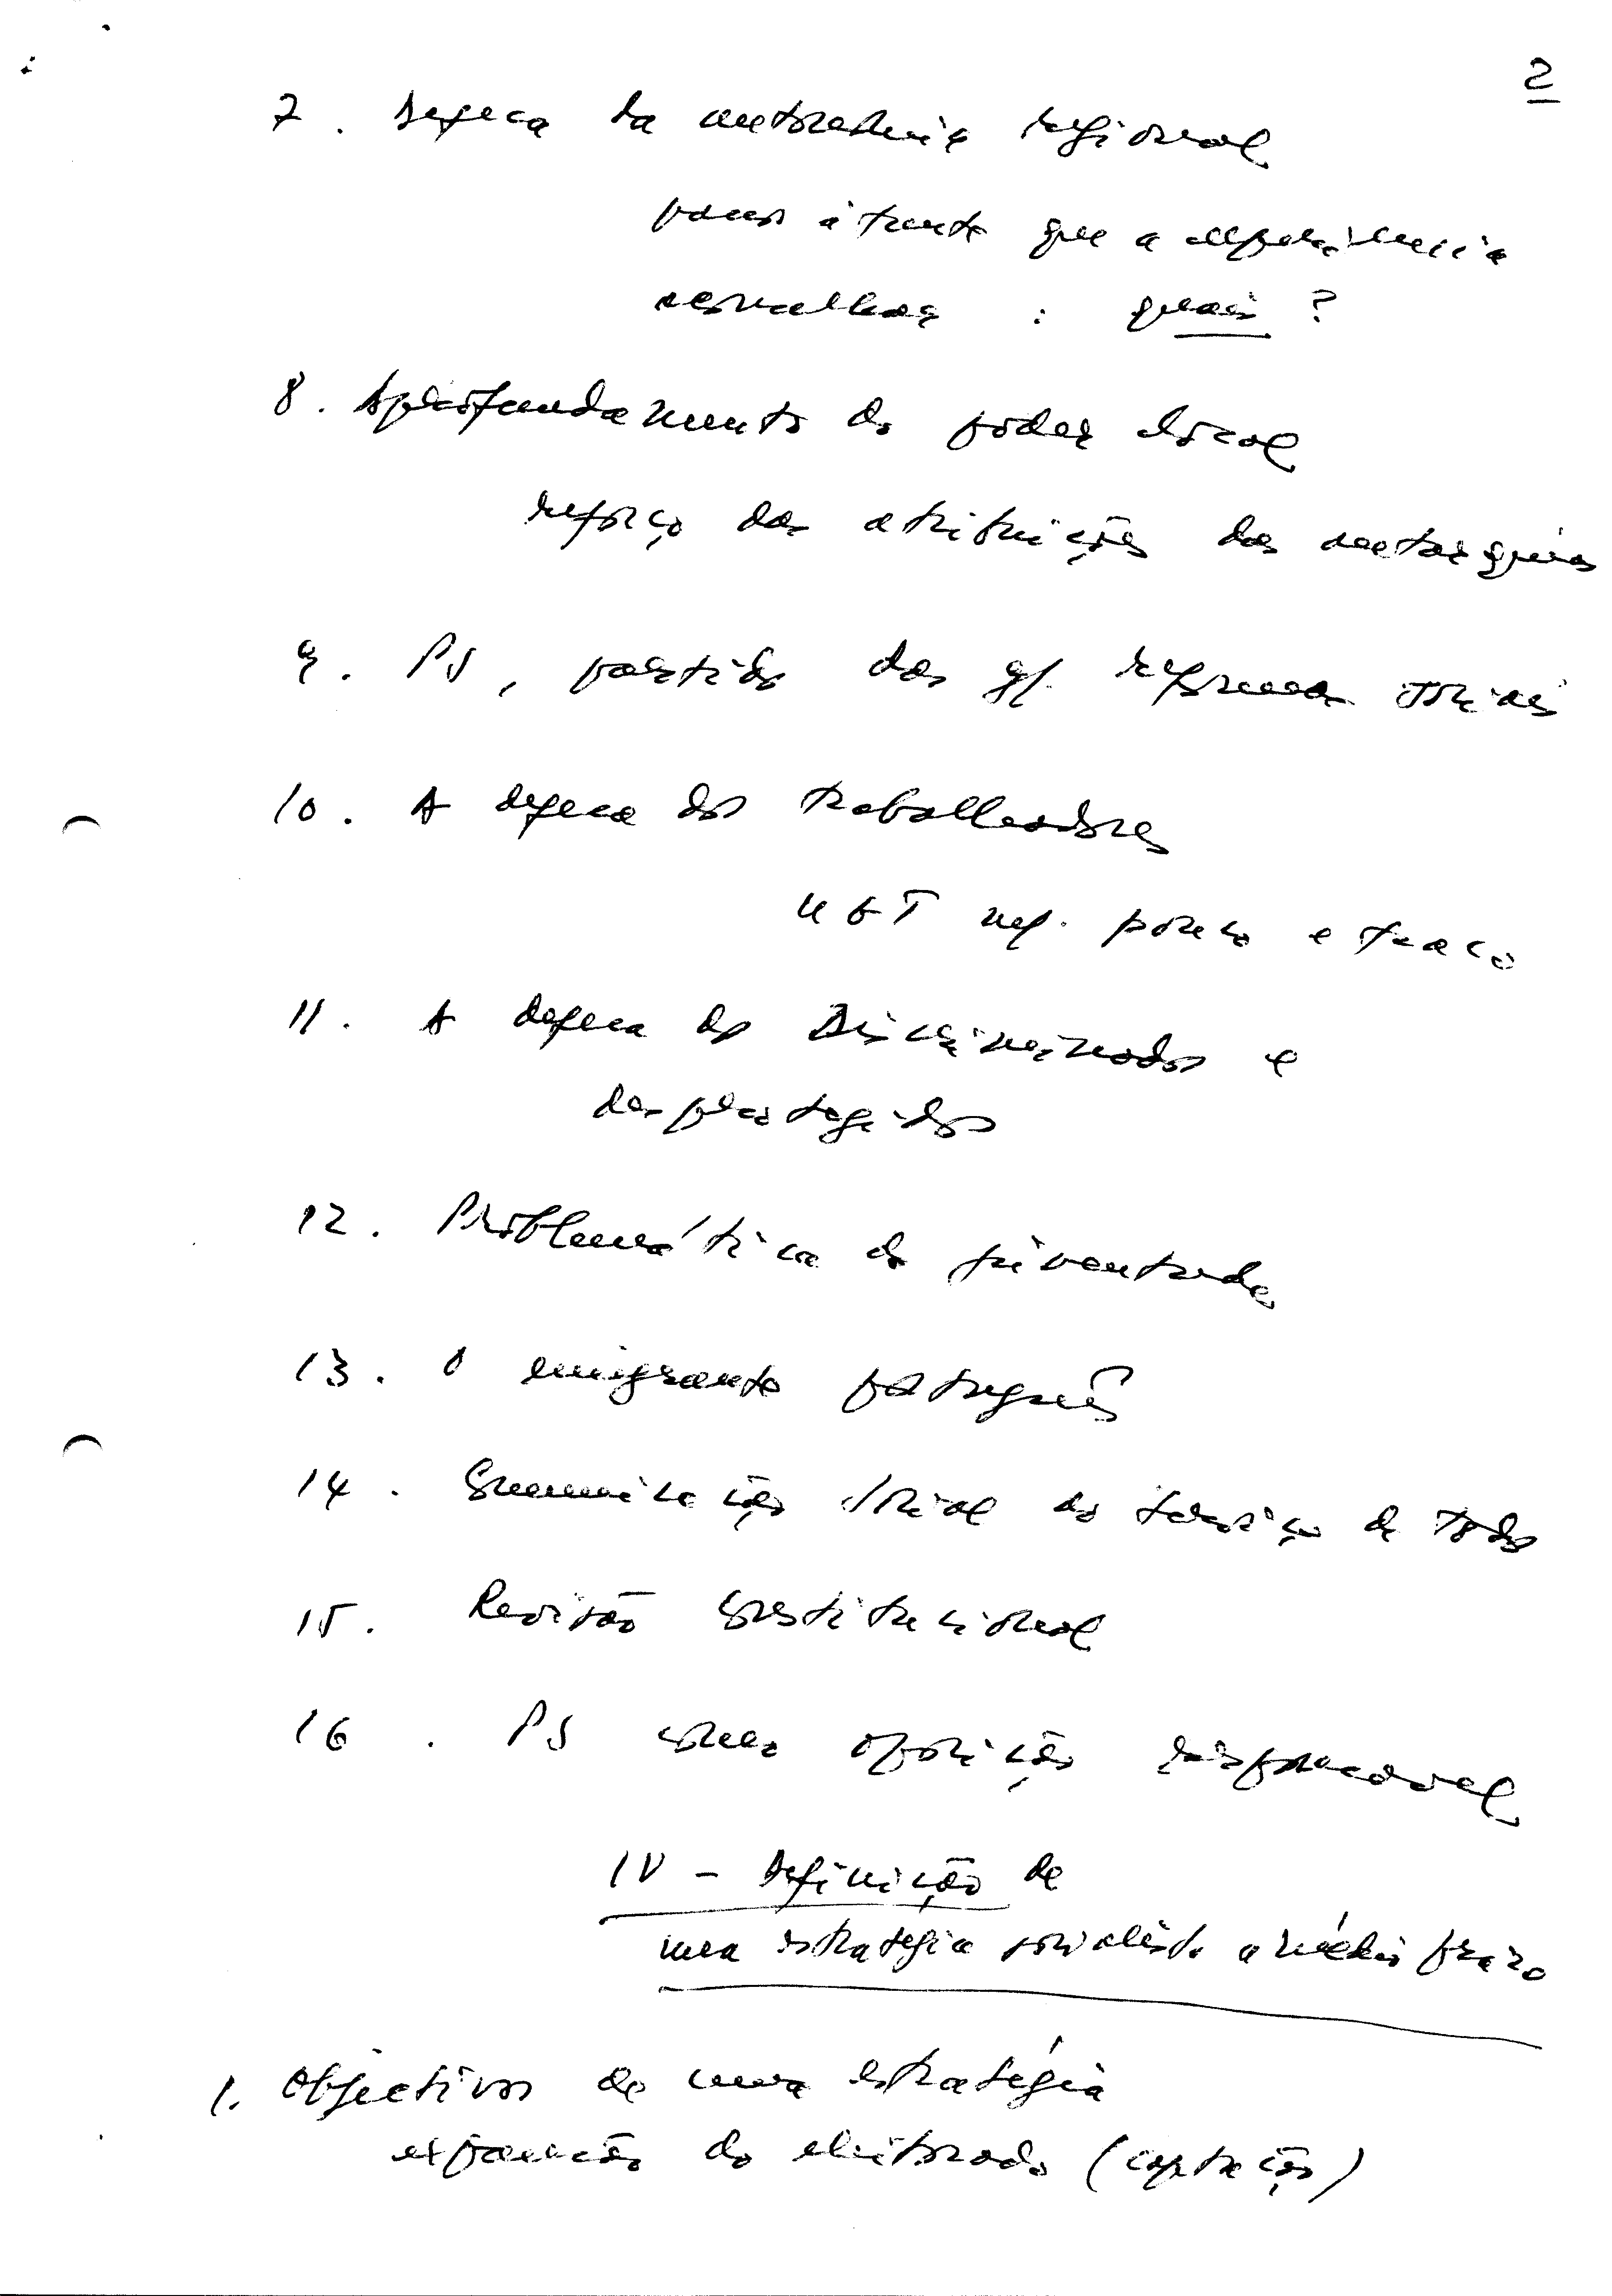 2
7. Defesa da autonomia regional
passos à frente que a experiência
aconselhar : quais ?
8. Aprofundamento do poder local
reforço das atribuições das autarquias
9. PS, partido das gr. reformas sociais
10. A defesa dos trabalhadores
UGT
11. A defesa dos discriminados e
desprotegidos
12. Problemática da juventude
13. O emigrante português
14. Comunicação social ao serviço de todos
15. Revisão constitucional
16. PS como oposição responsável
IV - Definição de
uma estratégia socialista a médio prazo
1. Objectivos de uma estratégia
expansão do eleitorado (captação)